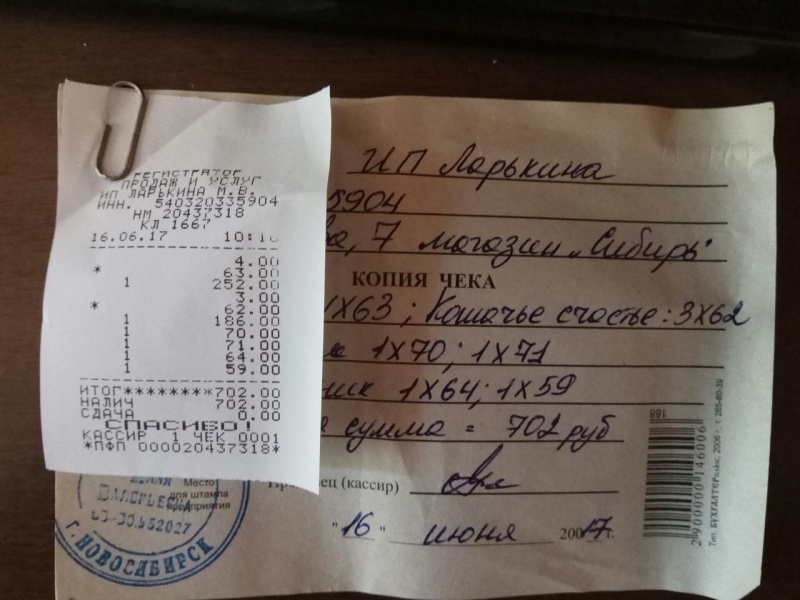 РЕГИСТРАТОР
ПРОДАЖ И УСЛУГ
ИП ЛАРЬКИНА М.В.
ИНН. 540320335904
НМ 20437318
КЛ 1667
16.06.17
4.00
* 63.00
1 252.00
3.00
* 62.00
1 186.00
1 70.00
1 71.00
1 64.00
1 59.00
ИТОГ********702.00
НАЛИЧ 702.00
СДАЧА 0.00
СПАСИБО!
КАССИР 1 ЧЕК 0001
*ПФП 000020437318*
ИП Ларькина
5904
7 магазин „Сибирь"
КОПИЯ ЧЕКА
1х63; Кошачье счастье: 3х62
1х70; 1х71
1х64; 1х59
сумма = 702 руб
(кассир)
"16" июня 2017 г.
Место
для штампа
предприятия
г. НОВОСИБИРСК
188
2900000146006